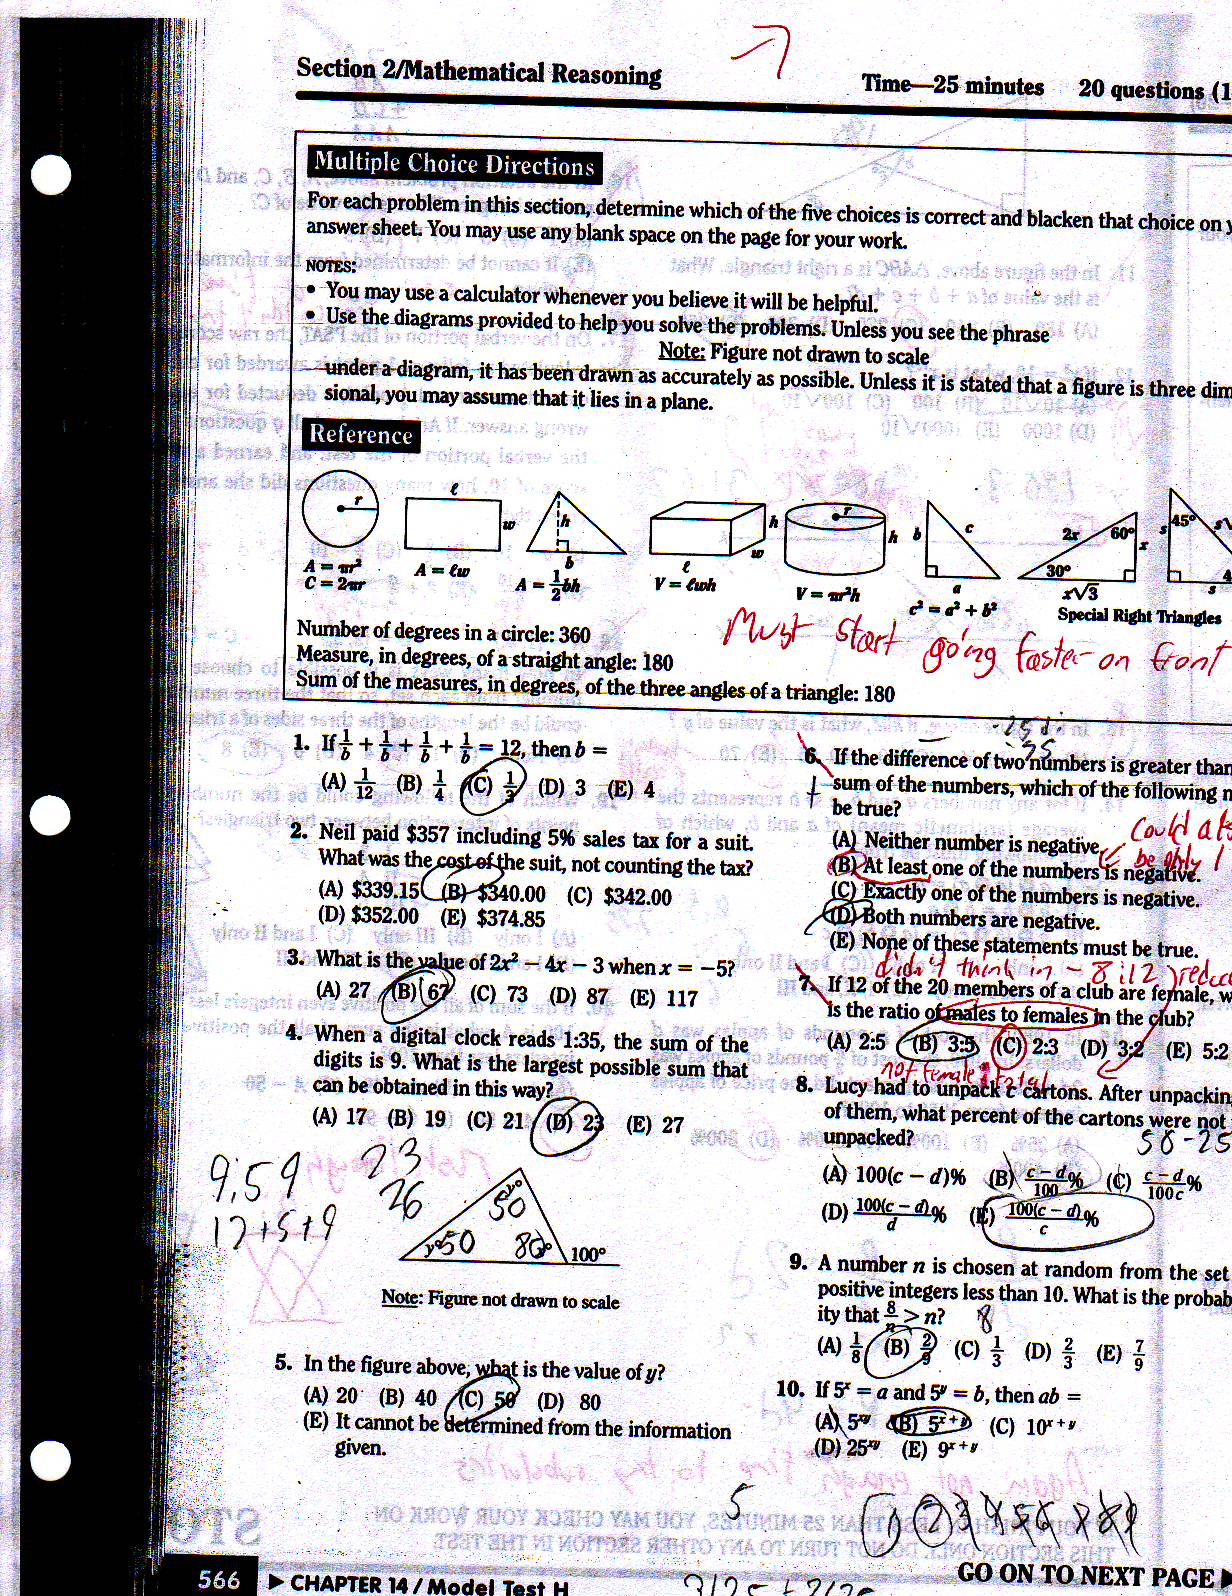 Section 2/Mathematical Reasoning
Time—25 minutes 20 questions (1
Multiple Choice Directions
For each problem in this section, determine which of the five choices is correct and blacken that choice on y
answer sheet. You may use any blank space on the page for your work.
NOTES:
• You may use a calculator whenever you believe it will be helpful.
• Use the diagrams provided to help you solve the problems. Unless you see the phrase
Note: Figure not drawn to scale
under a diagram, it has been drawn as accurately as possible. Unless it is stated that a figure is three dim
sional, you may assume that it lies in a plane.
Reference
r
ℓ
w
h
b
h
w
ℓ
r
h
b
c
a
2x
60°
x
30°
x√3
45°
s
s√
4
s
A = πr²
C = 2πr
A = ℓw
A = 1/2 bh
V = ℓwh
V = πr²h
c² = a² + b²
Special Right Triangles
Number of degrees in a circle: 360
Measure, in degrees, of a straight angle: 180
Sum of the measures, in degrees, of the three angles of a triangle: 180
Must start going faster on front
1. If 1/b + 1/b + 1/b + 1/b = 12, then b =
(A) 1/12 (B) 1/4 (C) 1/3 (D) 3 (E) 4
2. Neil paid $357 including 5% sales tax for a suit.
What was the cost of the suit, not counting the tax?
(A) $339.15 (B) $340.00 (C) $342.00
(D) $352.00 (E) $374.85
3. What is the value of 2x² − 4x − 3 when x = −5?
(A) 27 (B) 67 (C) 73 (D) 87 (E) 117
4. When a digital clock reads 1:35, the sum of the
digits is 9. What is the largest possible sum that
can be obtained in this way?
(A) 17 (B) 19 (C) 21 (D) 23 (E) 27
9:59
23
26
12+5+9
x°
50
y°
50
80
100°
Note: Figure not drawn to scale
5. In the figure above, what is the value of y?
(A) 20 (B) 40 (C) 50 (D) 80
(E) It cannot be determined from the information
given.
6. If the difference of two numbers is greater than
sum of the numbers, which of the following m
be true?
(A) Neither number is negative.
(B) At least one of the numbers is negative.
(C) Exactly one of the numbers is negative.
(D) Both numbers are negative.
(E) None of these statements must be true.
Could als
be only 1
didn't think in
7. If 12 of the 20 members of a club are female, w
is the ratio of males to females in the club?
(A) 2:5 (B) 3:5 (C) 2:3 (D) 3:2 (E) 5:2
not female : total
8. Lucy had to unpack c cartons. After unpackin
of them, what percent of the cartons were not
unpacked?
58-25
(A) 100(c − d)% (B) (c − d)/100 % (C) (c − d)/100c %
(D) 100(c − d)/d % (E) 100(c − d)/c %
9. A number n is chosen at random from the set
positive integers less than 10. What is the probab
ity that 8/n > n?
8
(A) 1/8 (B) 2/9 (C) 1/3 (D) 2/3 (E) 7/9
10. If 5ˣ = a and 5ʸ = b, then ab =
(A) 5ˣʸ (B) 5ˣ⁺ʸ (C) 10ˣ⁺ʸ
(D) 25ˣʸ (E) 9ˣ⁺ʸ
5
1 2 3 4 5 6 7 8 9
GO ON TO NEXT PAGE
566 ▶ CHAPTER 14 / Model Test H
3125 + 3125